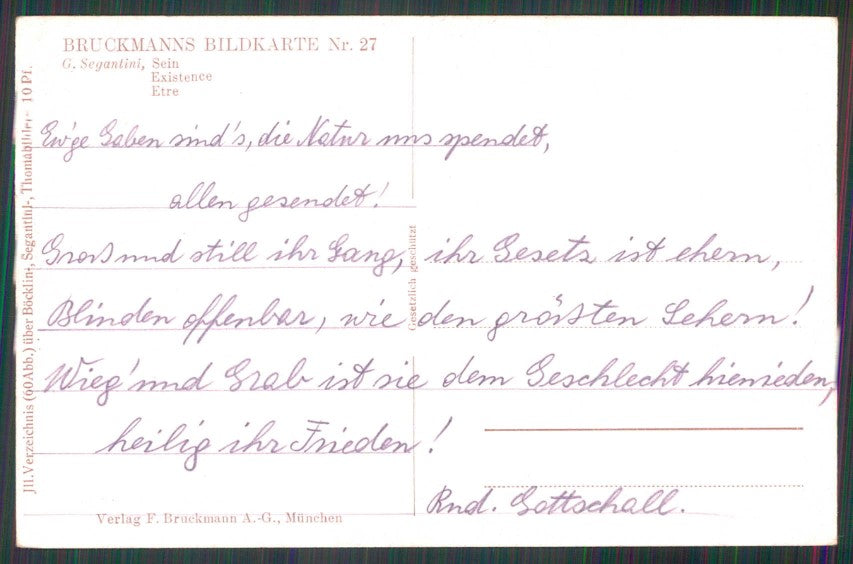 BRUCKMANNS BILDKARTE Nr. 27
G. Segantini, Sein
Existence
Etre
Ew'ge Gaben sind's, die Natur uns spendet,
allen gesendet!
Groß und still ihr Gang, ihr Gesetz ist ehern,
Blinden offenbar, wie den größten Sehern!
Wieg' und Grab ist sie dem Geschlecht hienieden,
heilig ihr Frieden!
Rud. Gottschall.
Verlag F. Bruckmann A.-G., München
Jll. Verzeichnis (60 Abb.) über Böcklin-, Segantini-, Thomabilder 10 Pf.
Gesetzlich geschützt